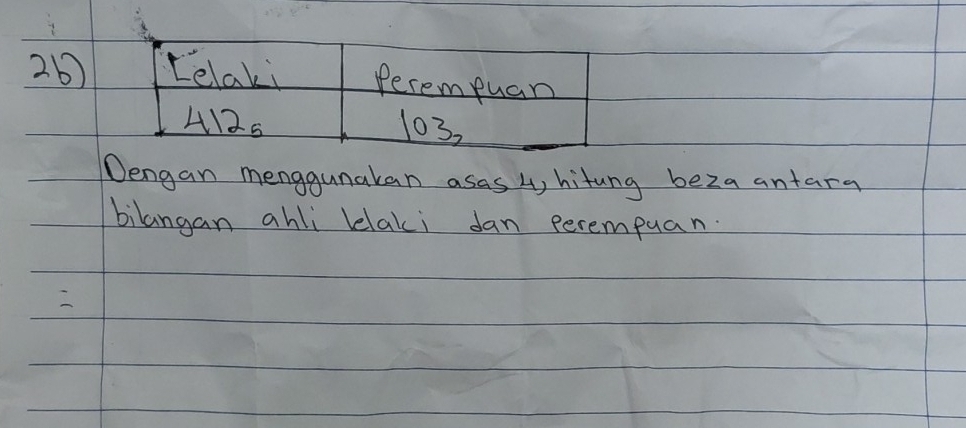 2b)
Lelaki Perempuan
412₅ 103₇
Dengan menggunakan asas 4, hitung beza antara
bilangan ahli lelaki dan perempuan.
=